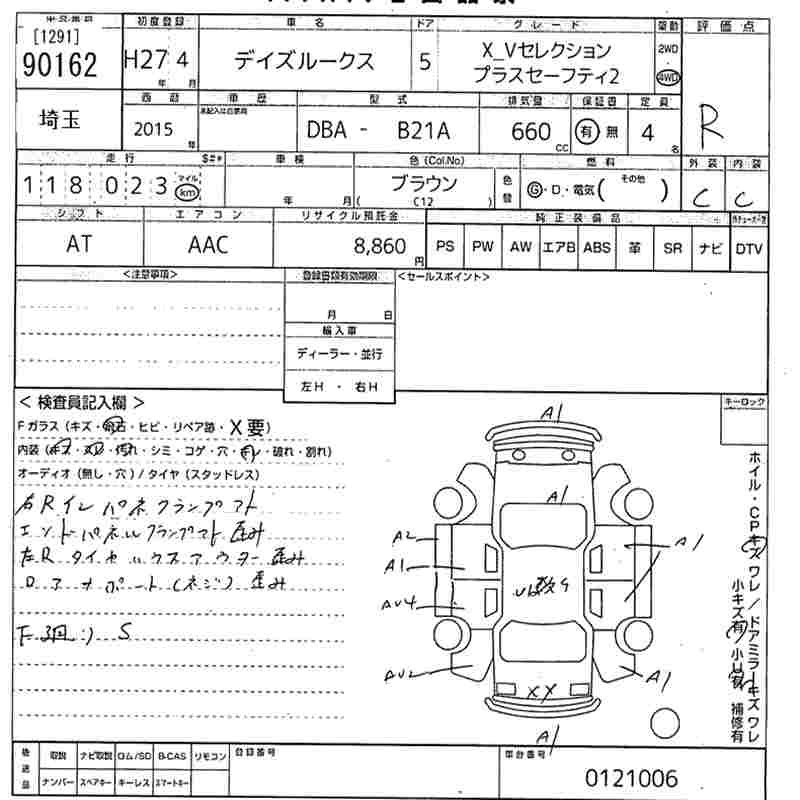 初度登録 車名 ドア グレード 駆動 評価点
[1291]
90162 H27 4 デイズルークス 5 X_Vセレクション 2WD
年 月 プラスセーフティ2 4WD
埼玉 西暦 車歴 型式 排気量 保証書 定員 R
未記入は自家用
2015 年 DBA - B21A 660 CC 有 無 4 名
走行 $#* 車検 色(Col.No) 燃料 外装 内装
118023 マイル km 年 月 ブラウン 色替 G・D・電気( その他 ) C C
( C12 )
シフト エアコン リサイクル預託金 純正装備品
AT AAC 8,860 円 PS PW AW エアB ABS 革 SR ナビ DTV
<注意事項> 登録書類有効期限 <セールスポイント>
月 日
輸入車
ディーラー・並行
左H ・ 右H
< 検査員記入欄 > キーロック
Fガラス (キズ・飛石・ヒビ・リペア跡・X要)
内装 (キズ・汚れ・シミ・コゲ・穴・破れ・割れ)
オーディオ (無し・穴) / タイヤ (スタッドレス)
右Rインパネクランプアト
エンドパネルクランプアト歪み
右Rタイヤハウスアウター歪み
歪み
S
A1
A1
A2
A1
A1
AU4
AU2
A1
XX
A1
ホイル・CPキズ ワレ / ドアミラーキズ ワレ
小キズ有 小U有 補修有
後送品 取説 ナビ取説 ロム/SD B-CAS リモコン 登録番号 車台番号
ナンバー スペアキー キーレス スマートキー 0121006